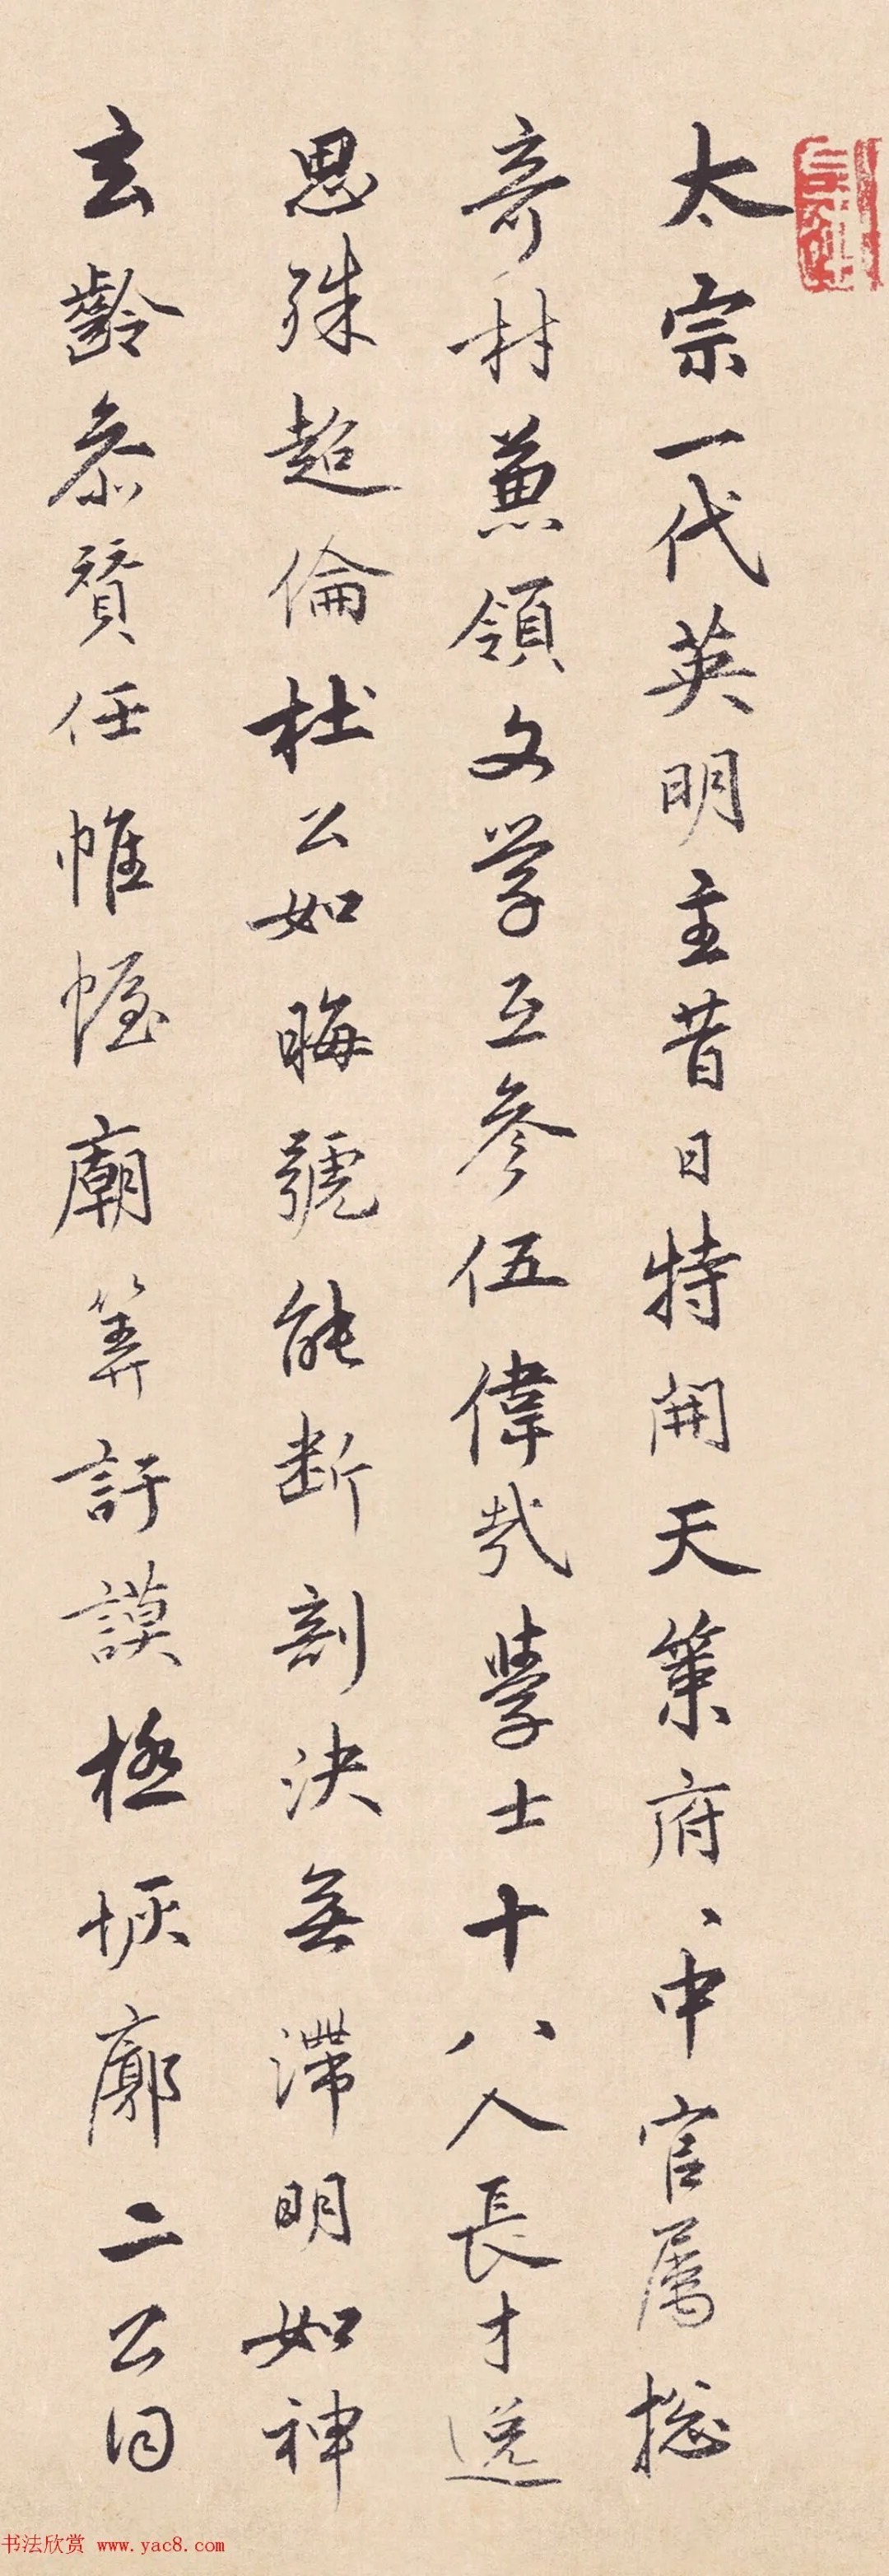 太宗一代英明主昔日特開天策府〻中官屬捴
奇材兼領文學互參伍偉哉學士十八人長才逸
思殊超倫杜公如晦號能断剖決無滯明如神
玄齡叅贊任帷幄廟筭訏謨極恢廓二公同
书法欣赏 www.yac8.com